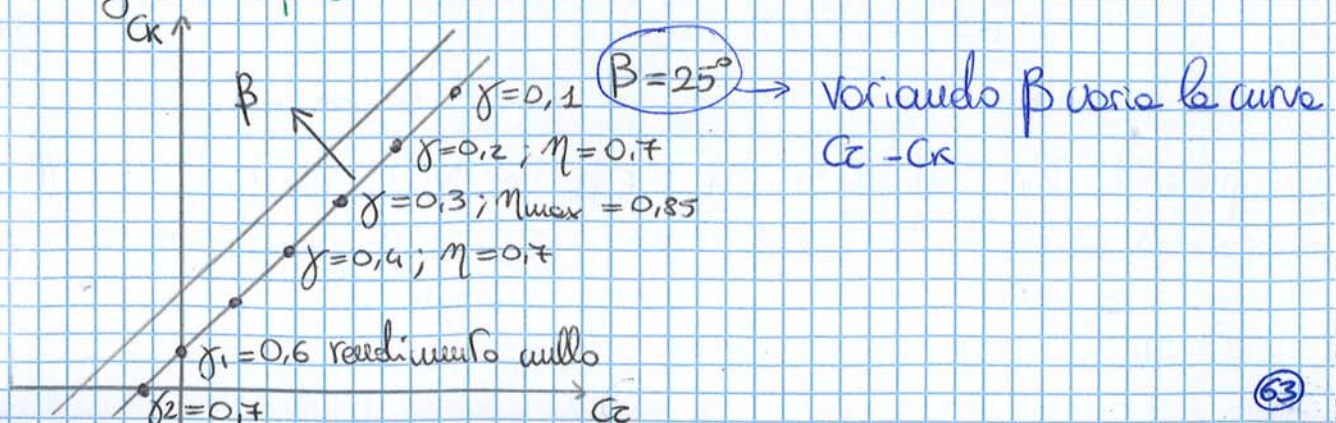 Cκ
β
γ=0,1
β=25° → variando β varia la curva
Cτ - Cκ
γ=0,2 ; η=0,7
γ=0,3 ; ηmax = 0,85
γ=0,4 ; η=0,7
γ1=0,6 rendimento nullo
γ2=0,7
Cτ
63